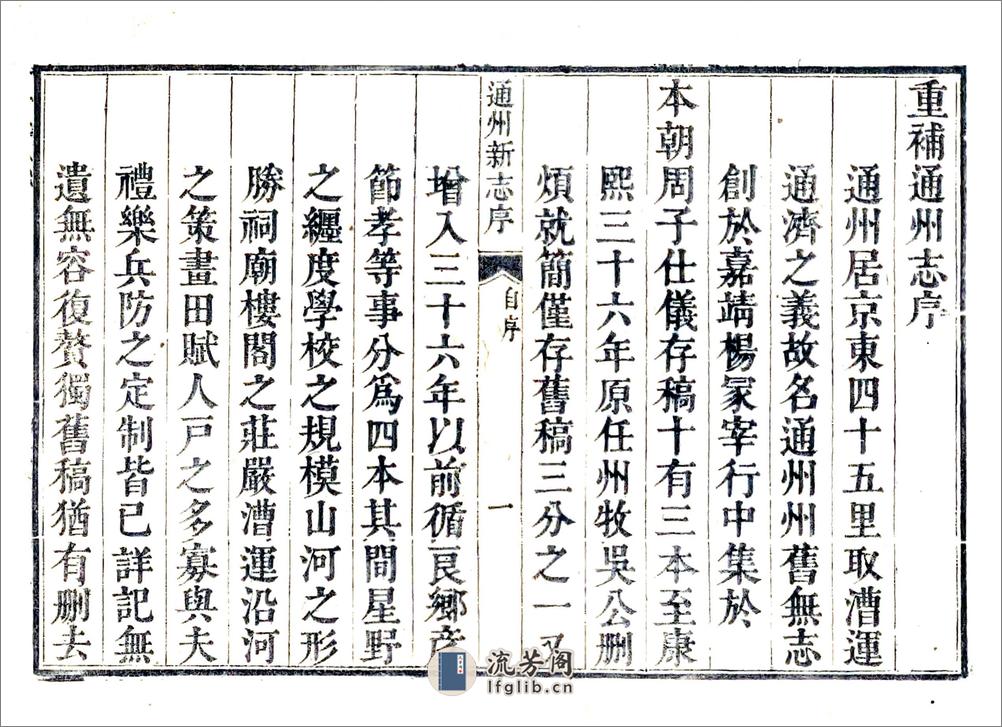 重補通州志序
通州居京東四十五里取漕運
通濟之義故名通州州舊無志
創於嘉靖楊冡宰行中集於
本朝周子仕儀存稿十有三本至康
熙三十六年原任州牧吳公刪
煩就簡僅存舊稿三分之一又
通州新志序
自序
一
增入三十六年以前循良鄉彥
節孝等事分爲四本其間星野
之纏度學校之規模山河之形
勝祠廟樓閣之莊嚴漕運沿河
之策畫田賦人戸之多寡與夫
禮樂兵防之定制皆已詳記無
遺無容復贅獨舊稿猶有刪去
流芳阁
lfglib.cn